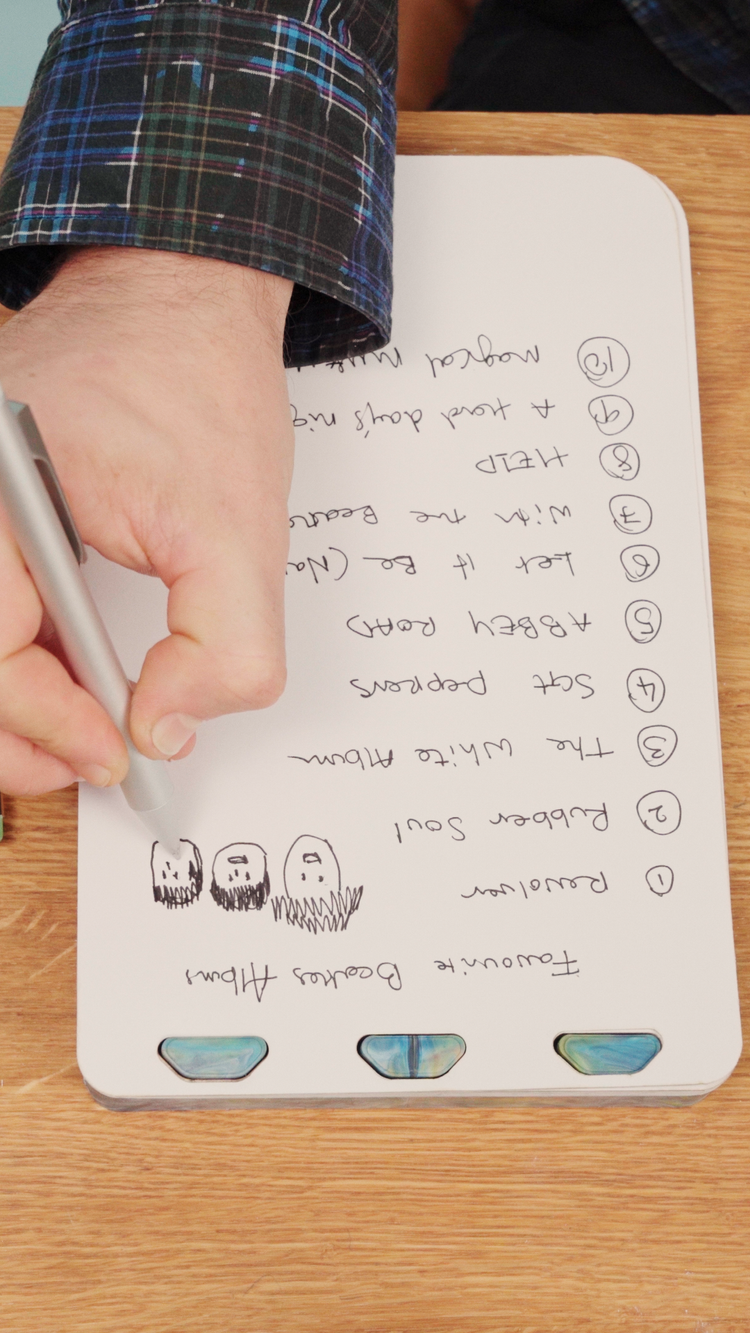 Favourite Beatles Albums
① Revolver
② Rubber Soul
③ The White Album
④ Sgt peppers
⑤ ABBEY ROAD
⑥ Let it Be (Na
⑦ With the Beatle
⑧ HELP
⑨ A Hard day's nig
⑩ Magical